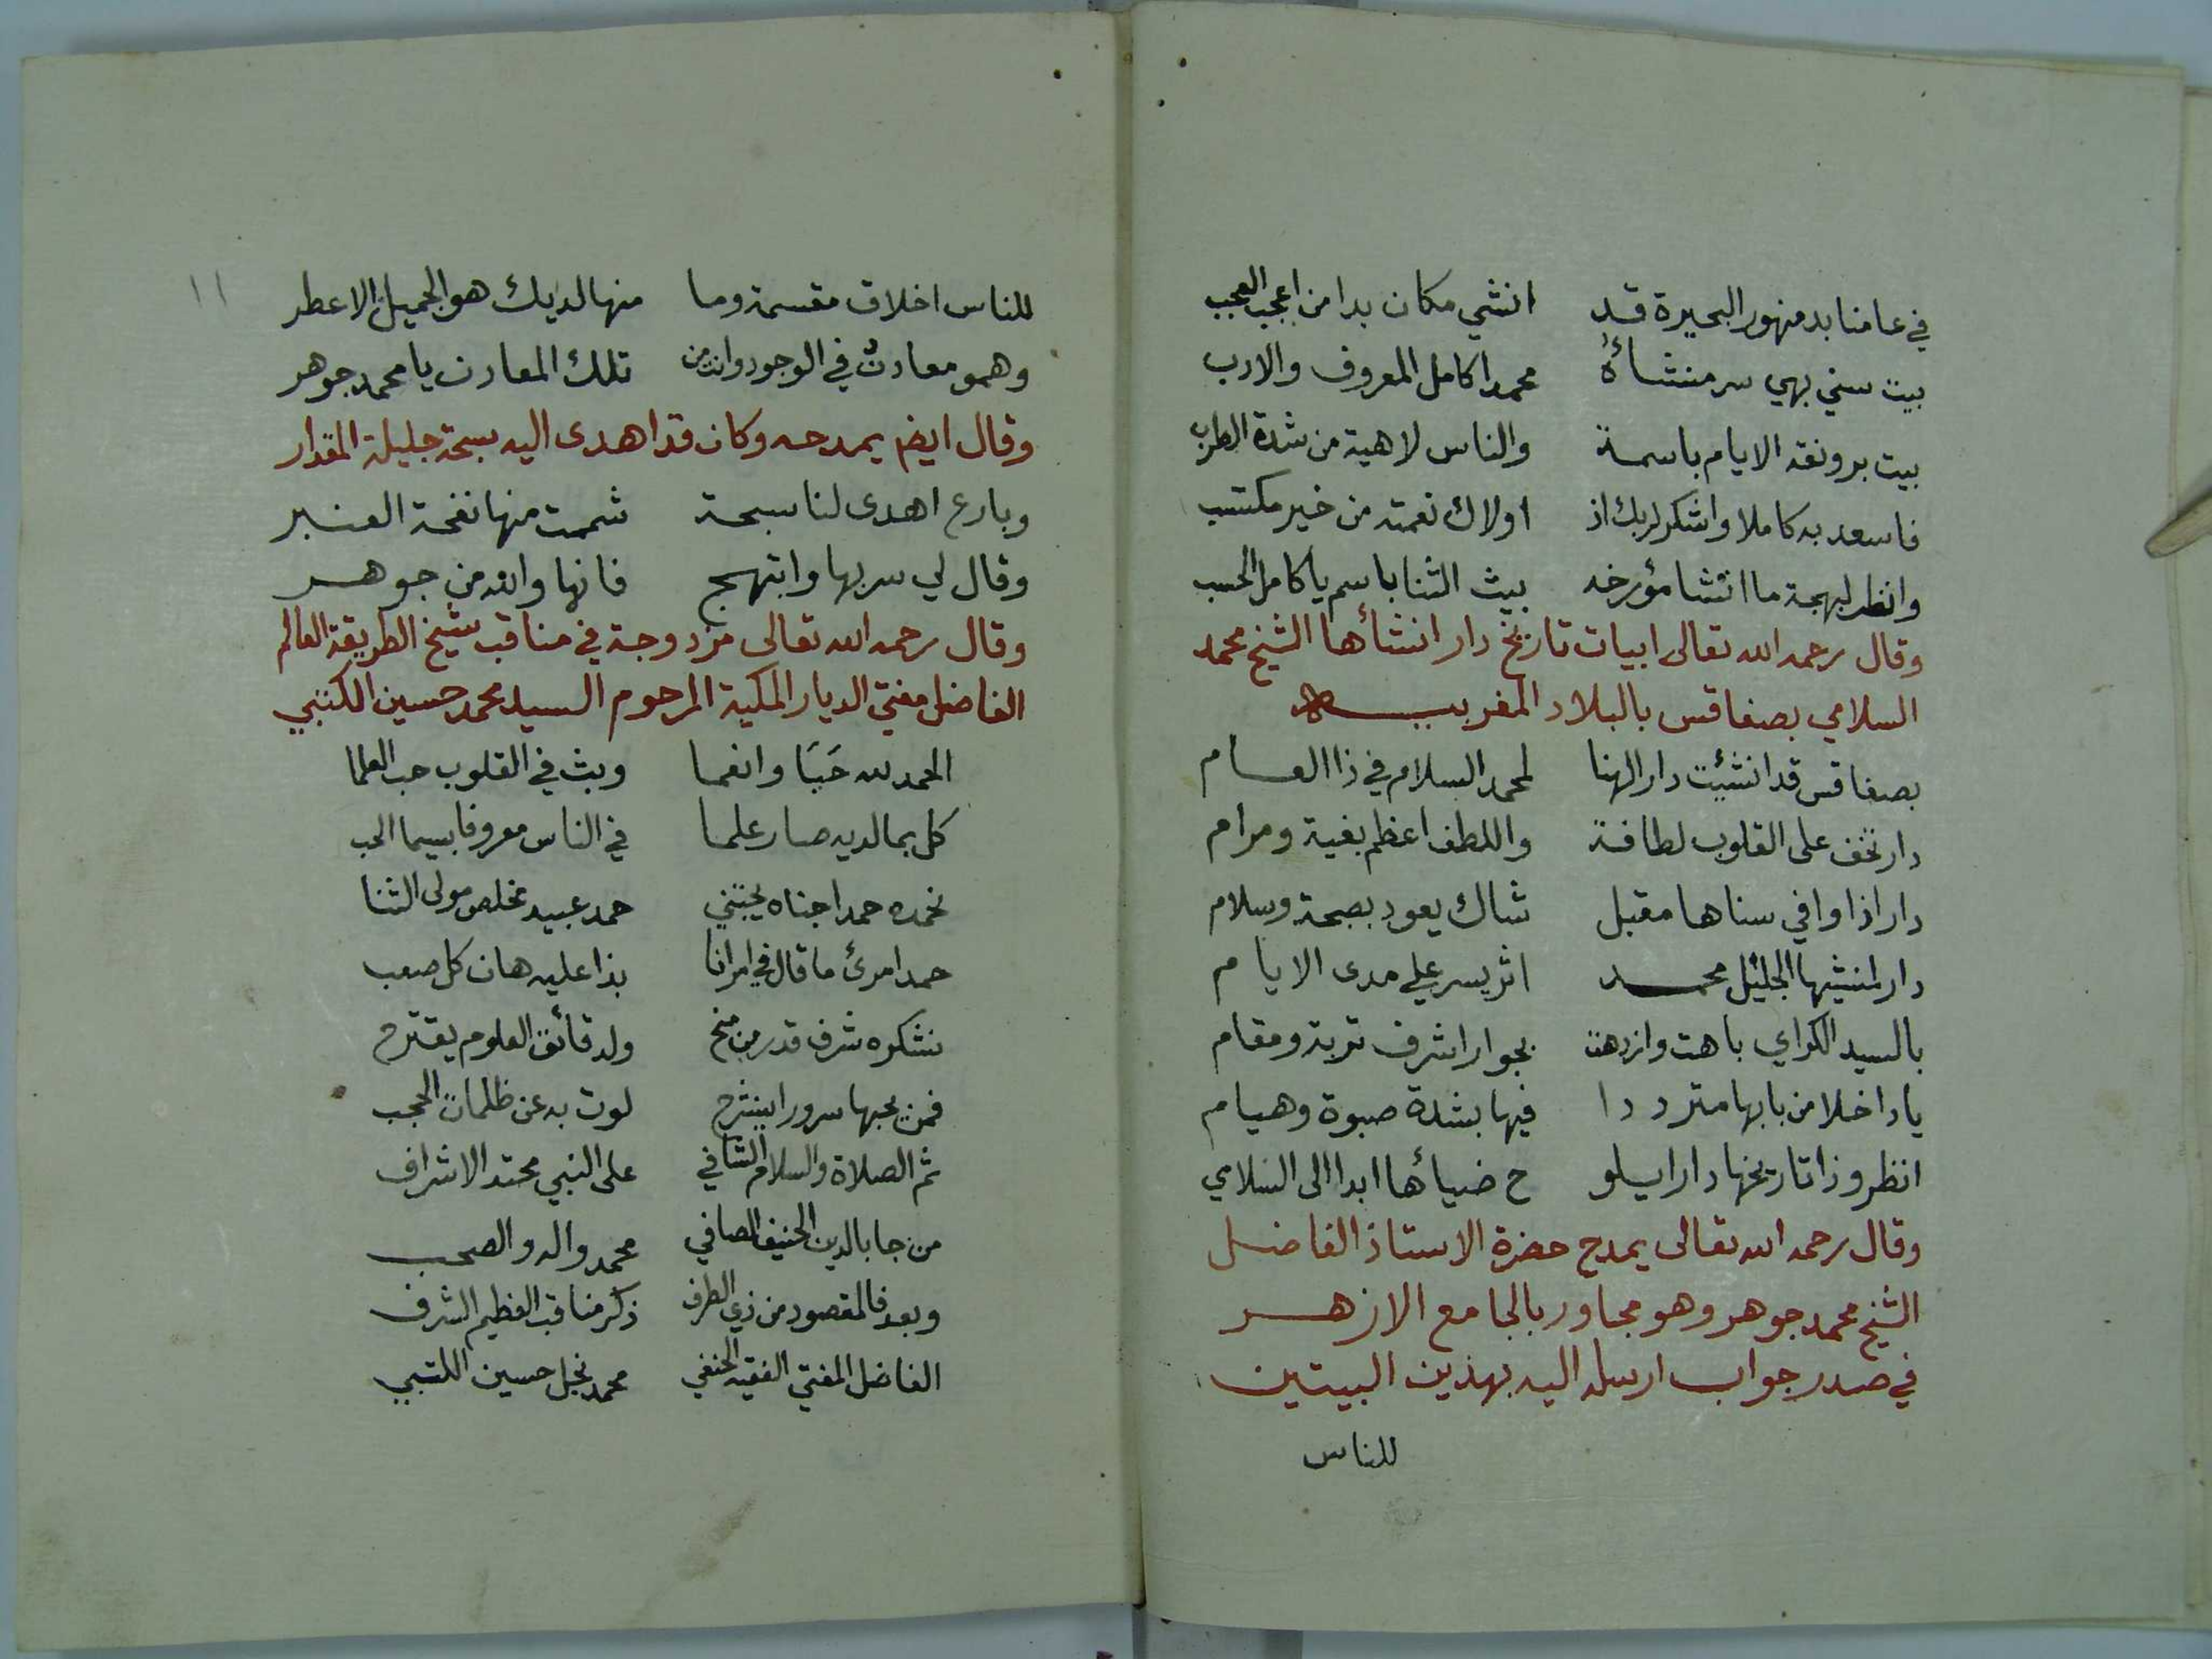 في عامنا بدمنهور البحيرة قد انشي مكان بدا من اعجب العجب
بيت سني بهي سر منشأه محمدا كامل المعروف والادب
بيت برونقه الايام باسمة والناس لاهية من شدة الطرب
فاسعد به كاملا واشكر لربك اذ اولاك نعمته من خير مكتسب
وانظر لبهجة ما انشا مؤرخه بيث الثنا باسم يا كامل الحسب
وقال رحمه الله تعالى ابيات تاريخ دار انشأها الشيخ محمد
السلامي بصفاقس بالبلاد المغربيه
بصفاقس قد انشئت دار الهنا لمحمد السلام في ذا العام
دار تخف على القلوب لطافة واللطف اعظم بغية ومرام
دار اذا وافي سناها مقبل شاك يعود بصحة وسلام
دار لمنشيها الجليل محمد اثر يسر علي مدى الايام
بالسيد الكراي باهت وازدهت بجوار اشرف تربة ومقام
يا داخلا من بابها مترددا فيها بشدة صبوة وهيام
انظر وذا تاريخها دارا يلو ح ضياءها ابدا الى السلامي
وقال رحمه الله تعالى يمدح حضرة الاستاذ الفاضل
الشيخ محمد جوهر وهو مجاور بالجامع الازهر
في صدر جواب ارسله اليه بهذين البيتين
للناس
١١
للناس اخلاق مقسمة وما منها لديك هو الجميل الاعطر
وهمو معادن في الوجود وانت من تلك المعادن يا محمد جوهر
وقال ايضم يمدحه وكان قد اهدى اليه سبحة جليلة المقدار
وبارع اهدى لنا سبحة شممت منها نفحة العنبر
وقال لي سر بها وابتهج فانها والله من جوهر
وقال رحمه الله تعالى مزدوجة في مناقب شيخ الطريقة العالم
الفاضل مفتي الديار المكية المرحوم السيد محمد حسين الكتبي
الحمد لله حبا وانعما وبث في القلوب حب العلما
كل بما لديه صار علما في الناس معروفا بسيما الحب
نحمده حمدا جناه يجتني حمد عبيد مخلص مولى الثنا
حمد امرئ ما قال في امر انا بذا عليه هان كل صعب
نشكره شرف قدر من منح ولدقائق العلوم يقترح
فمن بحبها سرورا ينشرح لوت به عن ظلمات الحجب
ثم الصلاة والسلام الشافي على النبي محتد الاشراف
من جا بالدين الحنيف الصافي محمد واله والصحب
وبعد فالمقصود من ذي الطرف ذكر مناقب العظيم الشرف
الفاضل المفتي الفقيه الحنفي محمد نجل حسين الكتبي